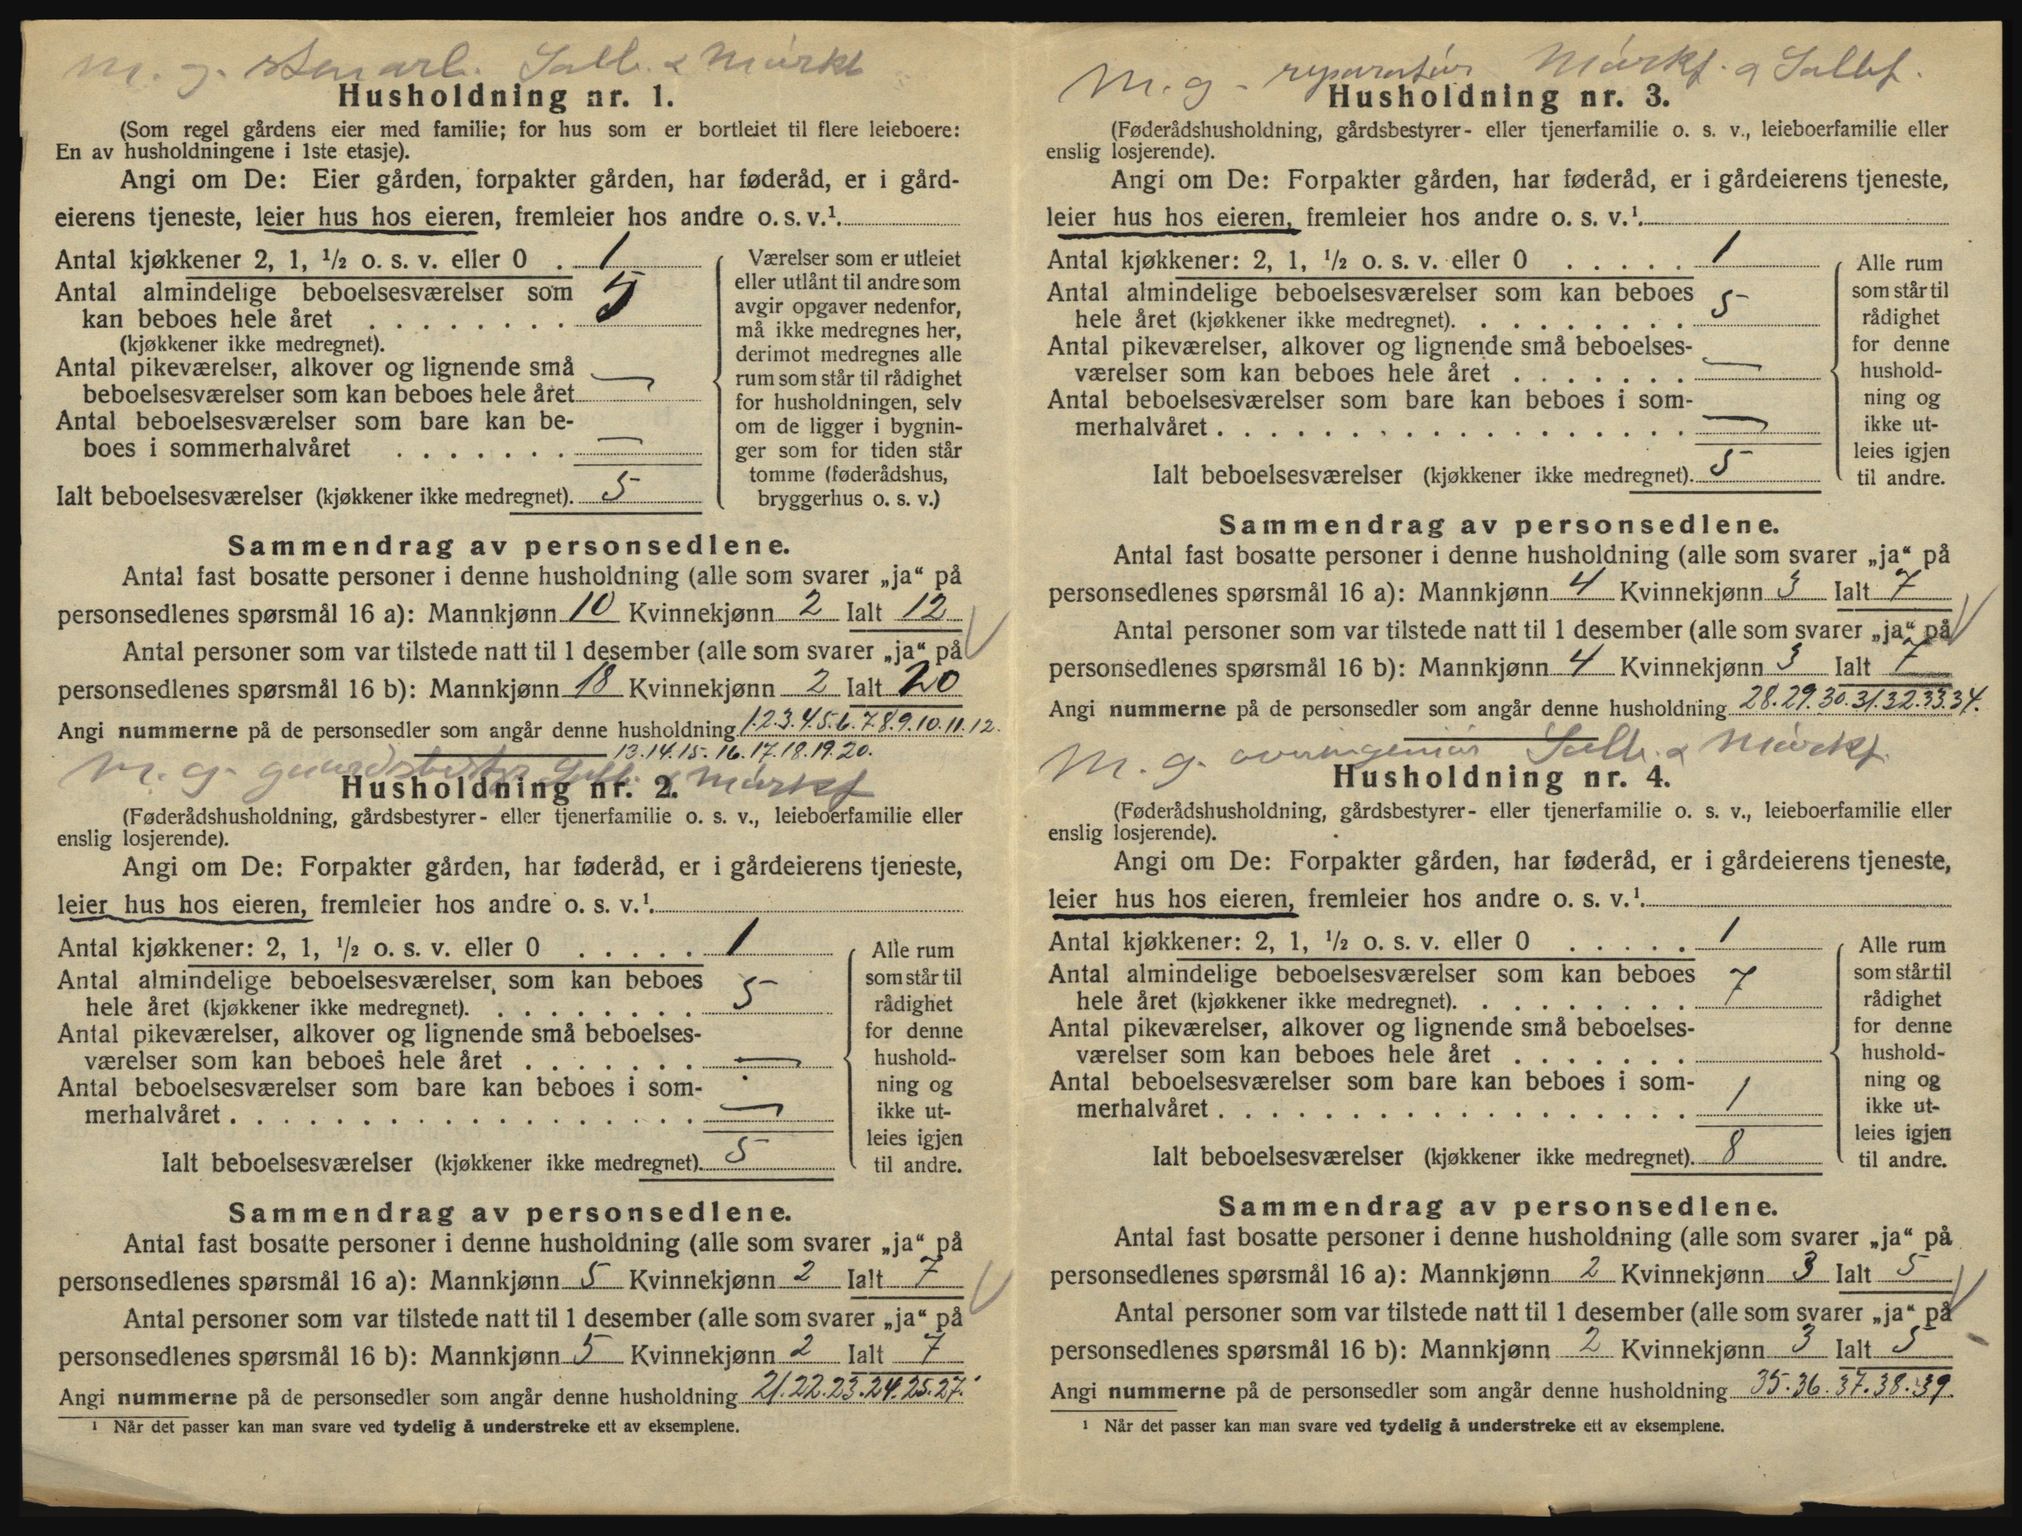 M. g. stenarb. Salb. & Mårkf
Husholdning nr. 1.
(Som regel gårdens eier med familie; for hus som er bortleiet til flere leieboere:
En av husholdningene i 1ste etasje).
Angi om De: Eier gården, forpakter gården, har føderåd, er i gård-
eierens tjeneste, leier hus hos eieren, fremleier hos andre o. s. v.¹.
Antal kjøkkener 2, 1, ½ o. s. v. eller 0 . 1
Antal almindelige beboelsesværelser som
kan beboes hele året . . . . . . . . 5
(kjøkkener ikke medregnet).
Antal pikeværelser, alkover og lignende små
beboelsesværelser som kan beboes hele året —
Antal beboelsesværelser som bare kan be-
boes i sommerhalvåret . . . . . . . —
Ialt beboelsesværelser (kjøkkener ikke medregnet). 5
Værelser som er utleiet
eller utlånt til andre som
avgir opgaver nedenfor,
må ikke medregnes her,
derimot medregnes alle
rum som står til rådighet
for husholdningen, selv
om de ligger i bygnin-
ger som for tiden står
tomme (føderådshus,
bryggerhus o. s. v.)
Sammendrag av personsedlene.
Antal fast bosatte personer i denne husholdning (alle som svarer „ja“ på
personsedlenes spørsmål 16 a): Mannkjønn 10 Kvinnekjønn 2 Ialt 12
Antal personer som var tilstede natt til 1 desember (alle som svarer „ja“ på
personsedlenes spørsmål 16 b): Mannkjønn 18 Kvinnekjønn 2 Ialt 20
Angi nummerne på de personsedler som angår denne husholdning 1.2.3.4.5.6.7.8.9.10.11.12.
13.14.15.16.17.18.19.20.
M. g. Mårkf
Husholdning nr. 2.
(Føderådshusholdning, gårdsbestyrer- eller tjenerfamilie o. s. v., leieboerfamilie eller
enslig losjerende).
Angi om De: Forpakter gården, har føderåd, er i gårdeierens tjeneste,
leier hus hos eieren, fremleier hos andre o. s. v.¹.
Antal kjøkkener: 2, 1, ½ o. s. v. eller 0 . . . . . 1
Antal almindelige beboelsesværelser, som kan beboes
hele året (kjøkkener ikke medregnet). . . . . . . . . 5
Antal pikeværelser, alkover og lignende små beboelses-
værelser som kan beboes hele året . . . . . . . —
Antal beboelsesværelser som bare kan beboes i som-
merhalvåret . . . . . . . . . . . . . . . . . . —
Ialt beboelsesværelser (kjøkkener ikke medregnet). 5
Alle rum
som står til
rådighet
for denne
hushold-
ning og
ikke ut-
leies igjen
til andre.
Sammendrag av personsedlene.
Antal fast bosatte personer i denne husholdning (alle som svarer „ja“ på
personsedlenes spørsmål 16 a): Mannkjønn 5 Kvinnekjønn 2 Ialt 7
Antal personer som var tilstede natt til 1 desember (alle som svarer „ja“ på
personsedlenes spørsmål 16 b): Mannkjønn 5 Kvinnekjønn 2 Ialt 7
Angi nummerne på de personsedler som angår denne husholdning 21.22.23.24.25.27.
¹ Når det passer kan man svare ved tydelig å understreke ett av eksemplene.
M. g. reparatør Mårkf. & Salbf.
Husholdning nr. 3.
(Føderådshusholdning, gårdsbestyrer- eller tjenerfamilie o. s. v., leieboerfamilie eller
enslig losjerende).
Angi om De: Forpakter gården, har føderåd, er i gårdeierens tjeneste,
leier hus hos eieren, fremleier hos andre o. s. v.¹.
Antal kjøkkener: 2, 1, ½ o. s. v. eller 0 . . . . . 1
Antal almindelige beboelsesværelser som kan beboes
hele året (kjøkkener ikke medregnet). . . . . . . . . 5
Antal pikeværelser, alkover og lignende små beboelses-
værelser som kan beboes hele året . . . . . . . —
Antal beboelsesværelser som bare kan beboes i som-
merhalvåret . . . . . . . . . . . . . . . . . . —
Ialt beboelsesværelser (kjøkkener ikke medregnet). 5
Alle rum
som står til
rådighet
for denne
hushold-
ning og
ikke ut-
leies igjen
til andre.
Sammendrag av personsedlene.
Antal fast bosatte personer i denne husholdning (alle som svarer „ja“ på
personsedlenes spørsmål 16 a): Mannkjønn 4 Kvinnekjønn 3 Ialt 7
Antal personer som var tilstede natt til 1 desember (alle som svarer „ja“ på
personsedlenes spørsmål 16 b): Mannkjønn 4 Kvinnekjønn 3 Ialt 7
Angi nummerne på de personsedler som angår denne husholdning 28.29.30.31.32.33.34.
M. g. overingeniør Salb. & Mårkf.
Husholdning nr. 4.
(Føderådshusholdning, gårdsbestyrer- eller tjenerfamilie o. s. v., leieboerfamilie eller
enslig losjerende).
Angi om De: Forpakter gården, har føderåd, er i gårdeierens tjeneste,
leier hus hos eieren, fremleier hos andre o. s. v.¹.
Antal kjøkkener: 2, 1, ½ o. s. v. eller 0 . . . . . 1
Antal almindelige beboelsesværelser som kan beboes
hele året (kjøkkener ikke medregnet). . . . . . . . . 7
Antal pikeværelser, alkover og lignende små beboelses-
værelser som kan beboes hele året . . . . . . .
Antal beboelsesværelser som bare kan beboes i som-
merhalvåret . . . . . . . . . . . . . . . . . . 1
Ialt beboelsesværelser (kjøkkener ikke medregnet). 8
Alle rum
som står til
rådighet
for denne
hushold-
ning og
ikke ut-
leies igjen
til andre.
Sammendrag av personsedlene.
Antal fast bosatte personer i denne husholdning (alle som svarer „ja“ på
personsedlenes spørsmål 16 a): Mannkjønn 2 Kvinnekjønn 3 Ialt 5
Antal personer som var tilstede natt til 1 desember (alle som svarer „ja“ på
personsedlenes spørsmål 16 b): Mannkjønn 2 Kvinnekjønn 3 Ialt 5
Angi nummerne på de personsedler som angår denne husholdning 35.36.37.38.39.
¹ Når det passer kan man svare ved tydelig å understreke ett av eksemplene.